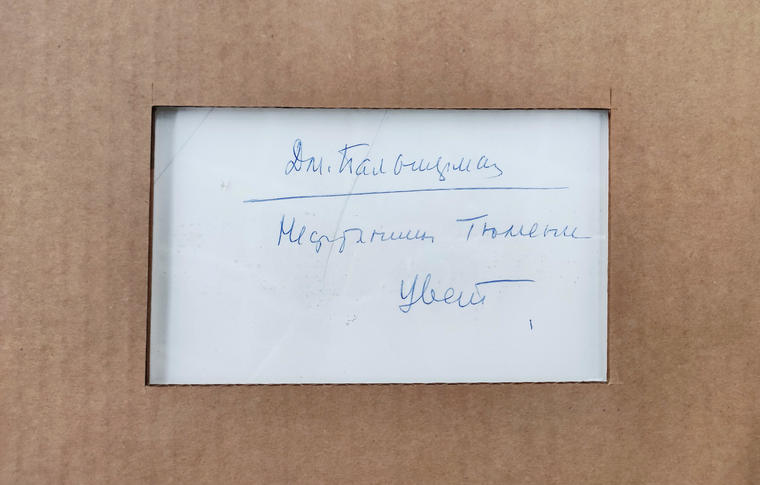 Дм. Бальтерманц
Нефтяники Тюмени
Цвет